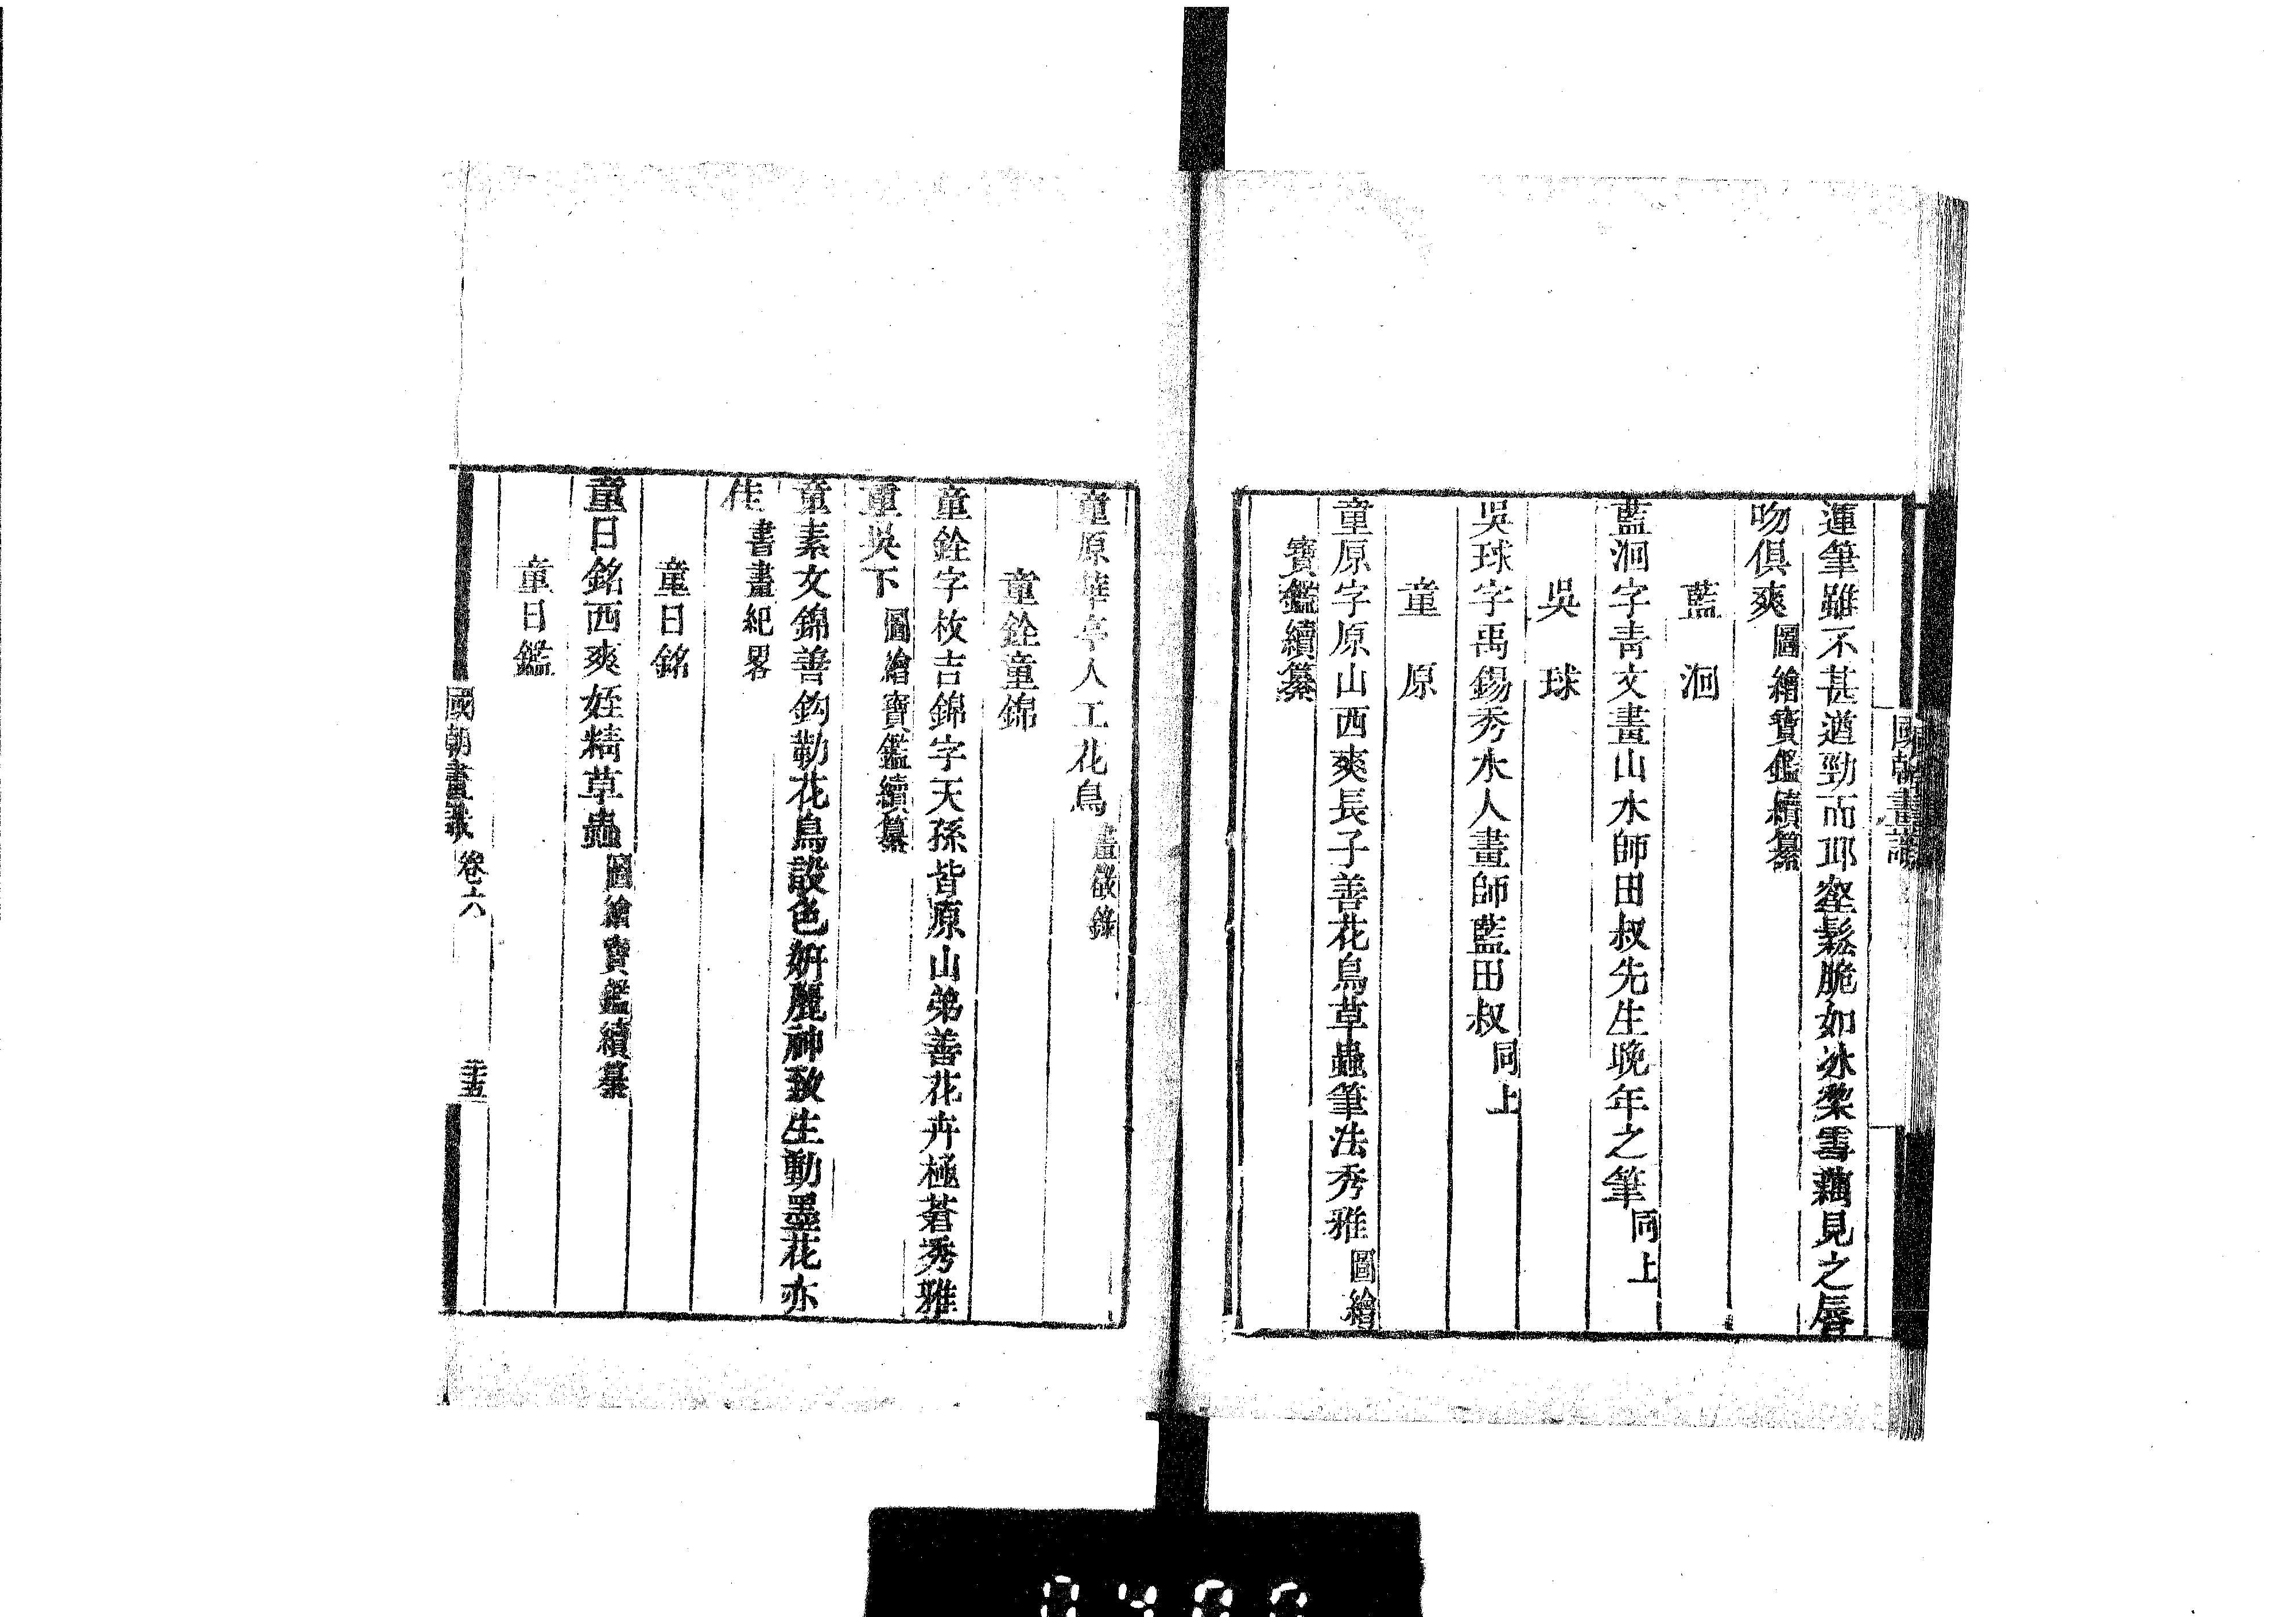 國朝畫識
運筆雖不甚遒勁而耶壑鬆脆如冰棃雪藕見之唇
吻俱爽圖繪寶鑑續纂
藍洄
藍洄字青文畫山水師田叔先生晚年之筆同上
吳球
吳球字禹錫秀水人畫師藍田叔同上
童原
童原字原山西爽長子善花鳥草蟲筆法秀雅圖繪
寶鑑續纂
童原華亭人工花鳥畫徵錄
童銓童錦
童銓字枚吉錦字天孫皆原山弟善花卉極蒼秀雅
重吳下圖繪寶鑑續纂
童素文錦善鈎勒花鳥設色妍麗神致生動墨花亦
佳書畫紀畧
童日銘
童日銘西爽姪精草蟲圖繪寶鑑續纂
童日鑑
國朝畫識 卷六 三十五